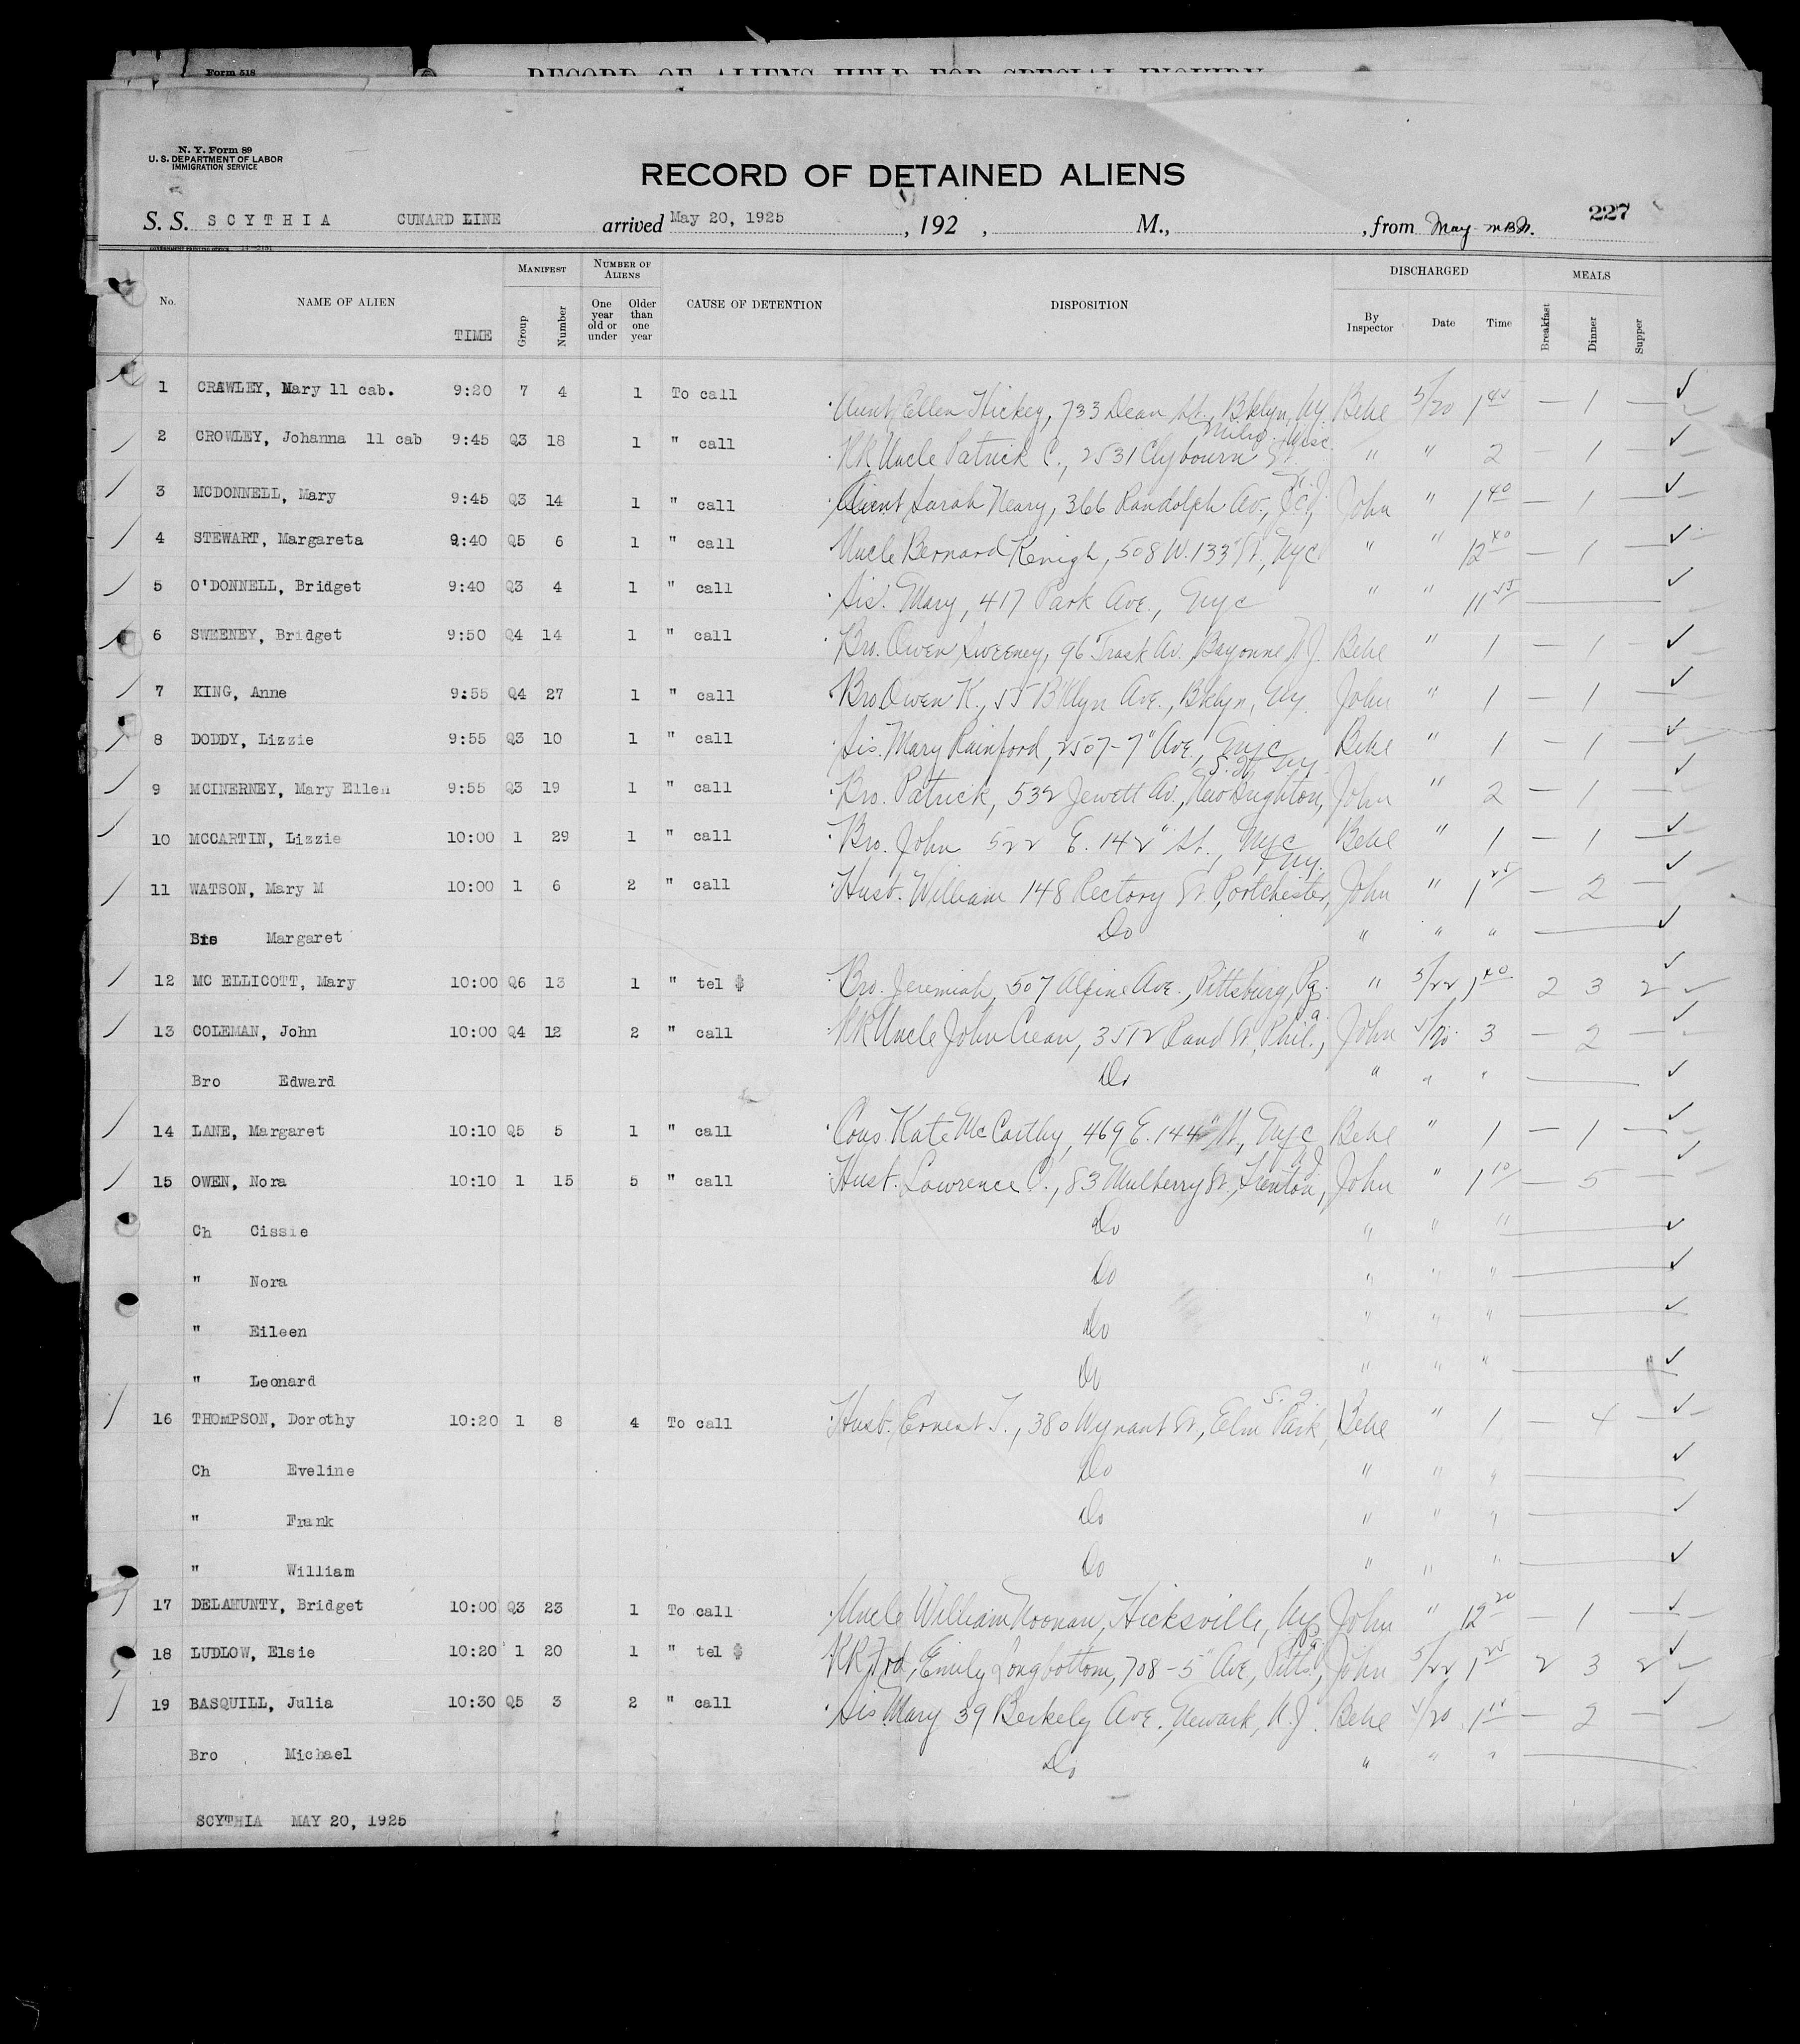 Form 518
RECORD OF ALIENS HELD FOR SPECIAL INQUIRY
N. Y. Form 89
U. S. DEPARTMENT OF LABOR
IMMIGRATION SERVICE
RECORD OF DETAINED ALIENS
227
S. S. SCYTHIA CUNARD LINE arrived May 20, 1925, 192 , M., , from May
No. NAME OF ALIEN TIME MANIFEST Group Number NUMBER OF ALIENS One year old or under Older than one year CAUSE OF DETENTION DISPOSITION DISCHARGED By Inspector Date Time MEALS Breakfast Dinner Supper
1 CRAWLEY, Mary 11 cab. 9:20 7 4 1 To call Aunt Ellen Hickey, 733 Dean St., Bklyn, Ny. Behe 5/20 1 45 — 1 — ✓
2 CROWLEY, Johanna 11 cab 9:45 Q3 18 1 " call RR Uncle Patrick C., 2531 Clybourn St. Milw. Wisc. " " 2 — 1 — ✓
3 MCDONNELL, Mary 9:45 Q3 14 1 " call Aunt Sarah Neary, 366 Randolph Av., J.C. N.J. John " 1 40 — 1 — ✓
4 STEWART, Margareta 9:40 Q5 6 1 " call Uncle Bernard Kenigh, 508 W. 133" St., Nyc " " 12 40 — 1 — ✓
5 O'DONNELL, Bridget 9:40 Q3 4 1 " call Sis. Mary, 417 Park Ave., Nyc " " 11 55 — ✓
6 SWEENEY, Bridget 9:50 Q4 14 1 " call Bro. Owen Sweeney, 96 Trask Av., Bayonne N.J. Behe " 1 — 1 — ✓
7 KING, Anne 9:55 Q4 27 1 " call Bro Owen K., 55 B'klyn Ave., Bklyn, Ny. John " 1 — 1 — ✓
8 DODDY, Lizzie 9:55 Q3 10 1 " call Sis. Mary Rainford, 2507-7" Ave, Nyc Behe " 1 — 1 — ✓
9 MCINERNEY, Mary Ellen 9:55 Q3 19 1 " call Bro. Patrick, 532 Jewett Av., New Brighton, S. I. Ny John " 2 — 1 — ✓
10 MCCARTIN, Lizzie 10:00 1 29 1 " call Bro. John 522 E. 142" St., Nyc Behe " 1 — 1 — ✓
11 WATSON, Mary M 10:00 1 6 2 " call Husb. William 148 Rectory St. Portchester, Ny. John " 1 25 — 2 — ✓
Sis Margaret Do " " " — ✓
12 MC ELLICOTT, Mary 10:00 Q6 13 1 " tel $ Bro. Jeremiah, 507 Alpine Ave., Pittsburg, Pa. " 5/22 1 40 2 3 2 ✓
13 COLEMAN, John 10:00 Q4 12 2 " call RR Uncle John Crean, 3512 Rand St, Phil., Pa. John 5/20 3 — 2 — ✓
Bro Edward Do " " " — ✓
14 LANE, Margaret 10:10 Q5 5 1 " call Cous. Kate McCarthy, 469 E. 144" St, Nyc Behe " 1 — 1 — ✓
15 OWEN, Nora 10:10 1 15 5 " call Husb. Lawrence O., 83 Mulberry St., Trenton, N.J. John " 1 10 — 5 — ✓
Ch Cissie Do " " " — ✓
" Nora Do " " " — ✓
" Eileen Do " " " — ✓
" Leonard Do " " " — ✓
16 THOMPSON, Dorothy 10:20 1 8 4 To call Husb. Ernest T., 380 Wynant St, Elm Park, S. I. Behe " 1 — 4 — ✓
Ch Eveline Do " " " — ✓
" Frank Do " " " — ✓
" William Do " " " — ✓
17 DELAHUNTY, Bridget 10:00 Q3 23 1 To call Uncle William Noonan, Hicksville, Ny John " 12 20 — 1 — ✓
18 LUDLOW, Elsie 10:20 1 20 1 " tel $ RR Frd, Emily Longbottom, 708-5" Ave, Pitts., Pa. John 5/22 1 25 2 3 2 ✓
19 BASQUILL, Julia 10:30 Q5 3 2 " call Sis Mary 39 Berkely Ave., Newark, N.J. Behe 5/20 1 15 — 2 — ✓
Bro Michael Do " " " —
SCYTHIA MAY 20, 1925